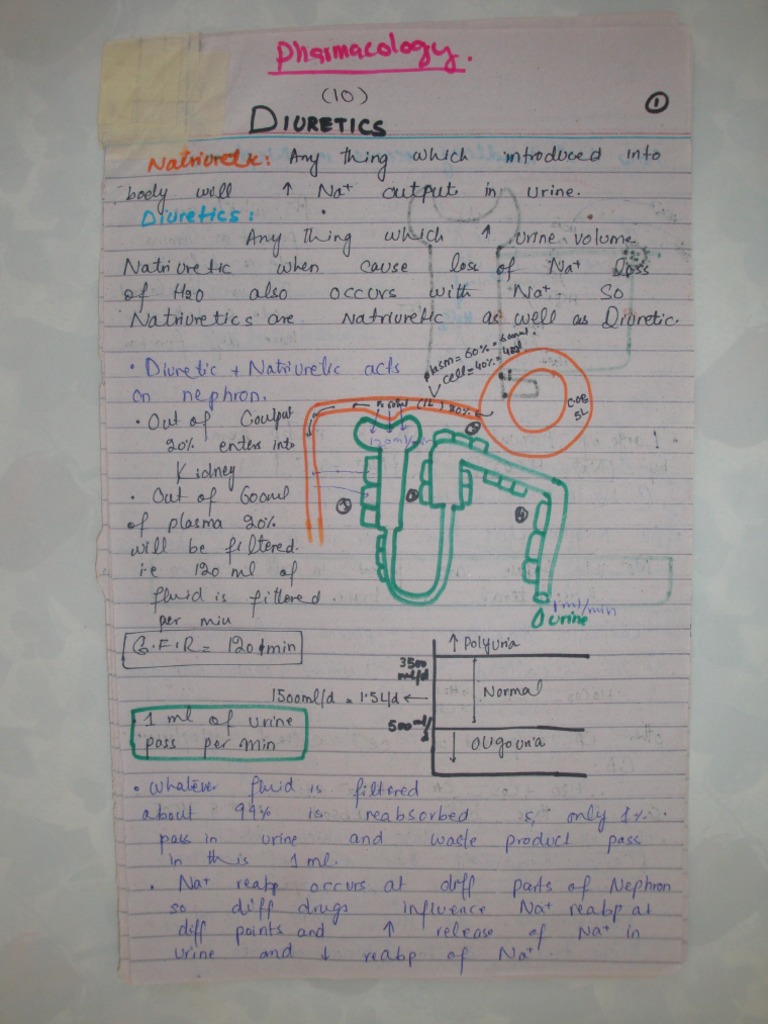 Pharmacology.
(10)
1
DIURETICS
Natriuretic: Any thing which introduced into
body will ↑ Na+ output in urine.
Diuretics:
Any thing which ↑ urine volume
Natriuretic when cause loss of Na+ loss
of H2O also occurs with Na+. So
Natriuretics are natriuretic as well as Diuretic.
• Diuretic + Natriuretic acts
on nephron.
plasm = 60% = 600ml.
cell = 40% = 400ml
(1L) 20%
C.O=
5L
120ml/min
• Out of Coutput
20% enters into
Kidney
• Out of 600ml
of plasma 20%
will be filtered.
i.e 120 ml of
fluid is filtered
per min
1
2
3
4
1ml/min
urine
G.F.R = 120/min
↑ Polyuria
3500
ml/d
Normal
1500ml/d = 1.5L/d ←
500ml/
d
↓ Oligouria
1 ml of urine
pass per min
• Whatever fluid is filtered
about 99% is reabsorbed & only 1%
pass in urine and waste product pass
in this 1 ml.
• Na+ reabp occurs at diff parts of Nephron
so diff drugs influence Na+ reabp at
diff points and ↑ release of Na+ in
urine and ↓ reabp of Na+.